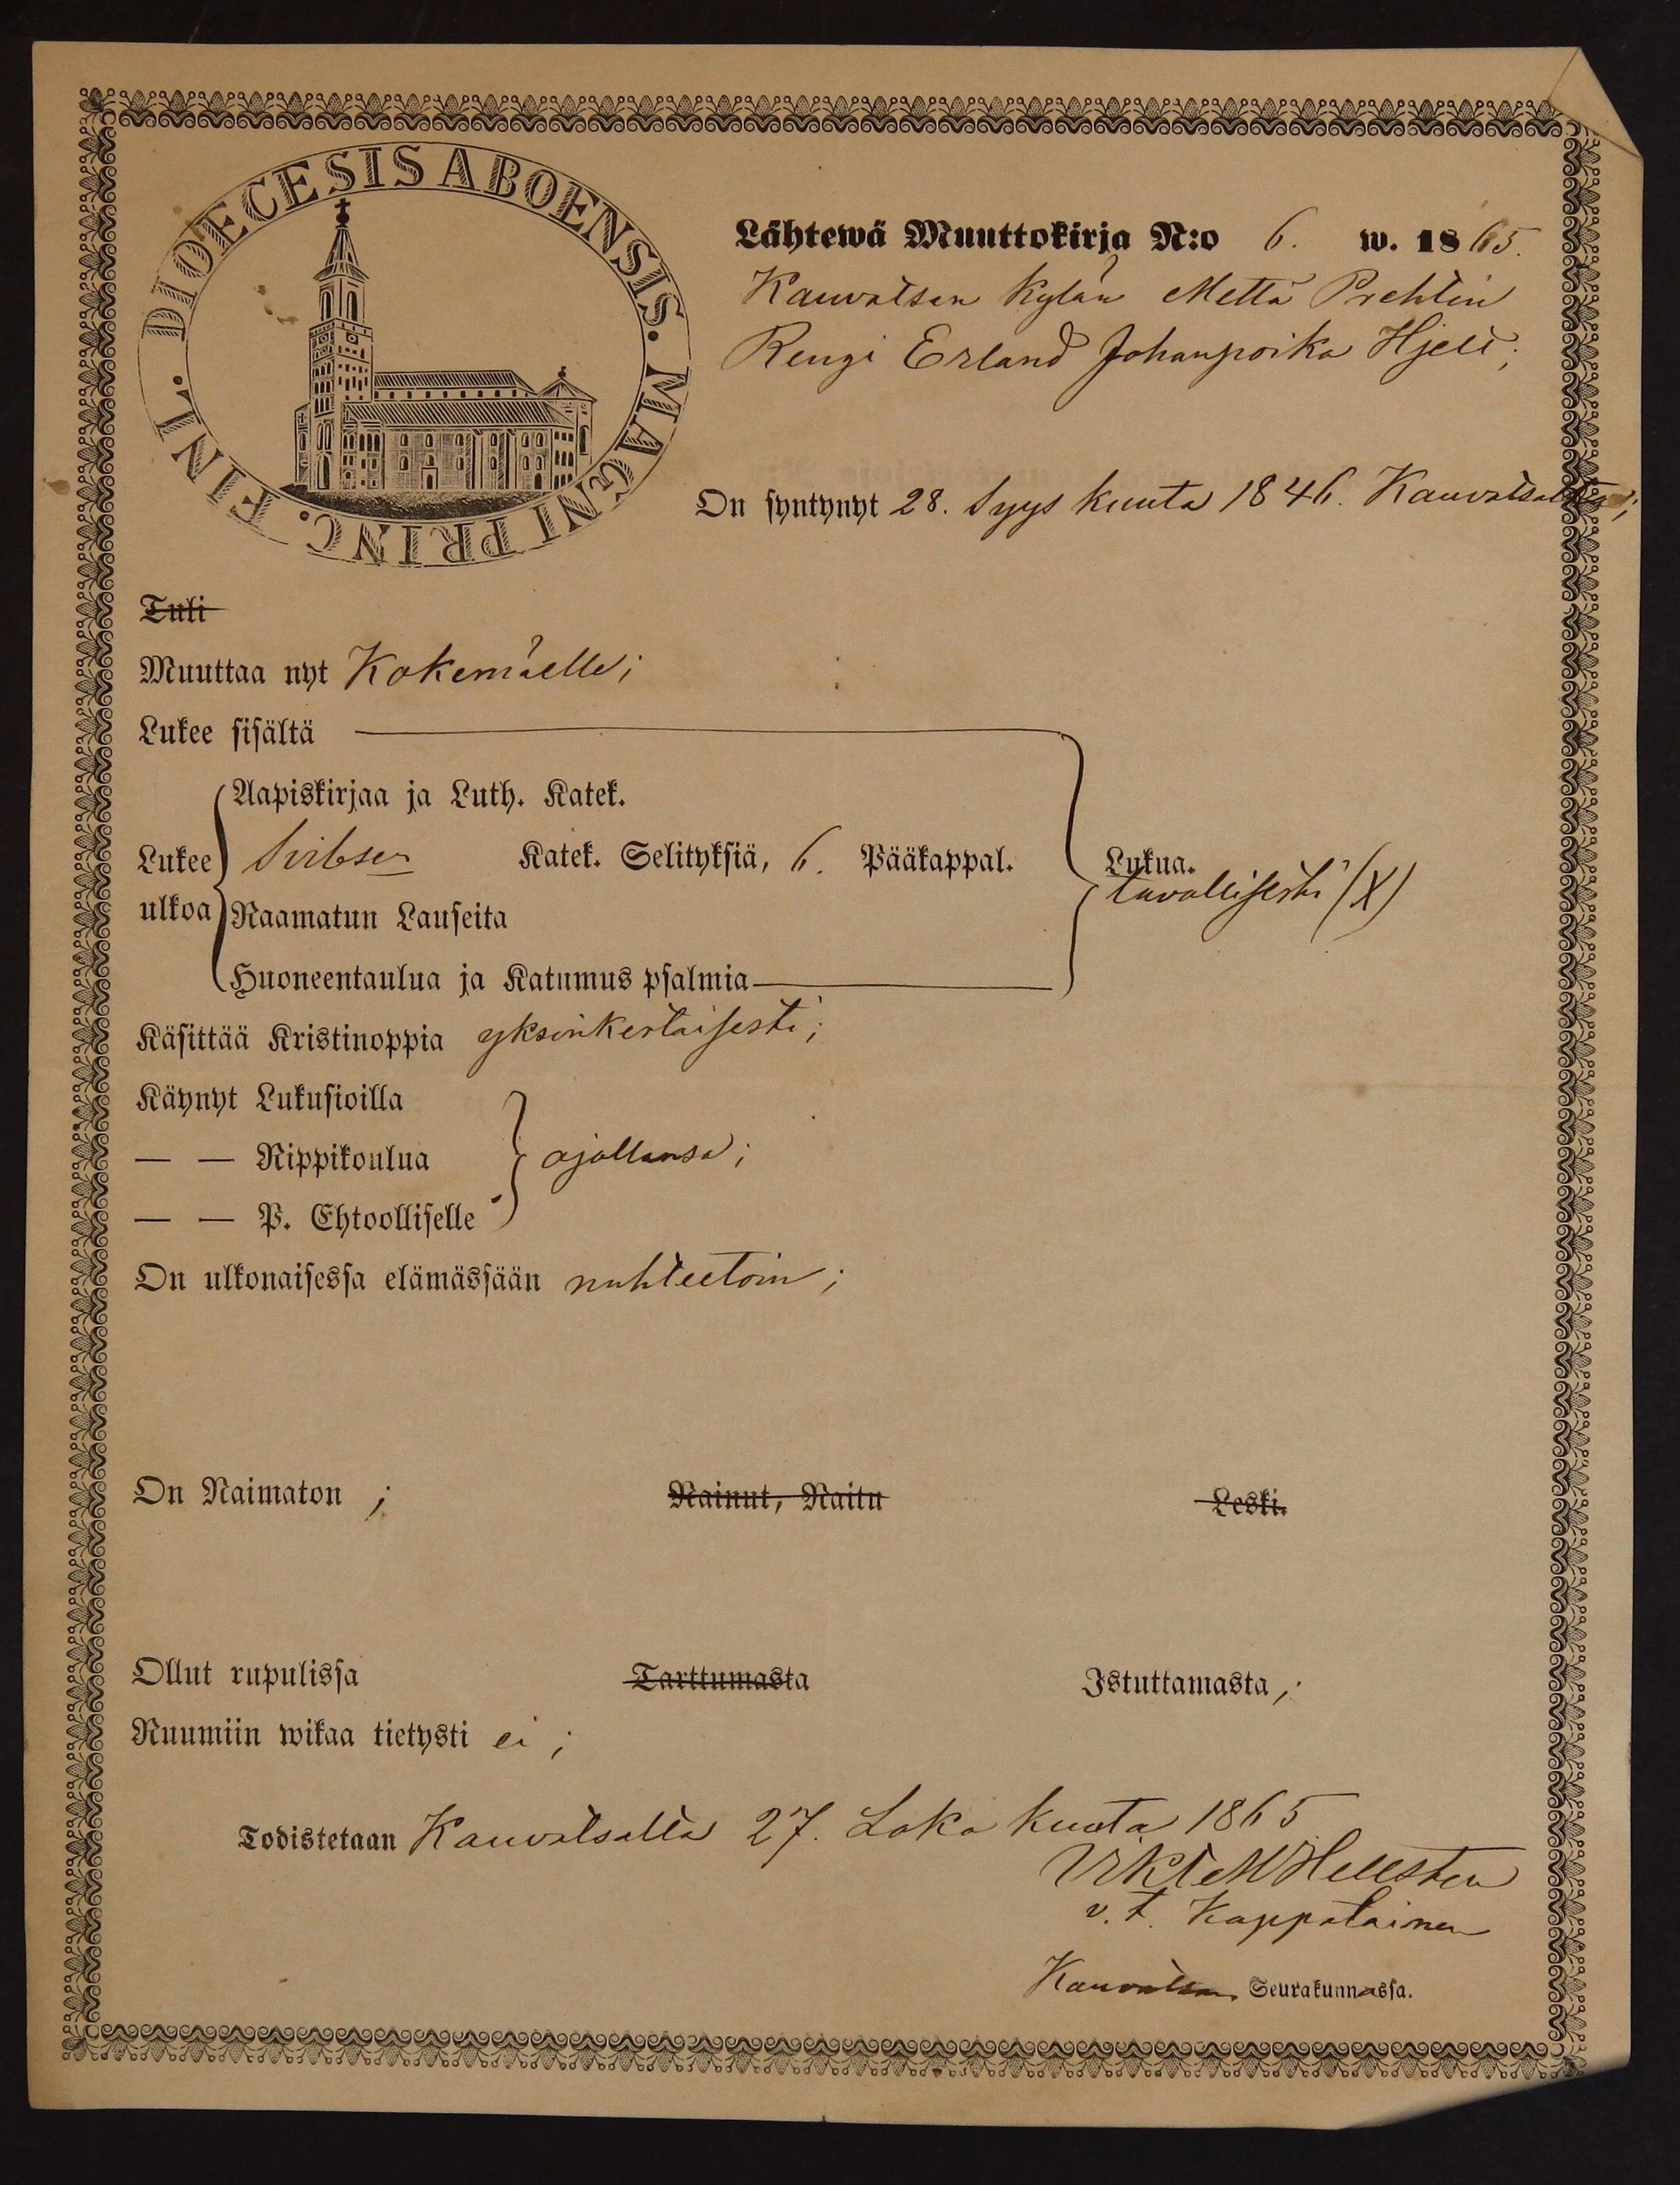 DIOECESIS ABOENSIS. MAGNI PRINC. FINL.
Lähtewä Muuttokirja N:o 6. w. 1865.
Kauvatsan kylän Mettä Prehtin
Rengi Erland Johanpoika Hjelt;
On syntynyt 28. Syys kuuta 1846. Kauvatsalla;
Tuli
Muuttaa nyt Kokemäelle;
Lukee sisältä
Aapiskirjaa ja Luth. Katek.
Lukee ulkoa Katek. Selityksiä, 6. Pääkappal.
Raamatun Lauseita
Huoneentaulua ja Katumus psalmia
Lukua.
tavallisesti (X)
Käsittää Kristinoppia yksinkertaisesti;
Käynyt Lukusioilla
— — Rippikoulua
ajallansa;
— — P. Ehtoolliselle
On ulkonaisessa elämässään nuhteetoin;
On Naimaton ; Nainut, Naitu Leski.
Ollut rupulissa Tarttumasta Istuttamasta,;
Ruumiin wikaa tietysti ei ;
Todistetaan Kauvatsalla 27. Loka kuuta 1865
Hellsten
v. t. Kappalainen
Kauvatsan Seurakunnassa.